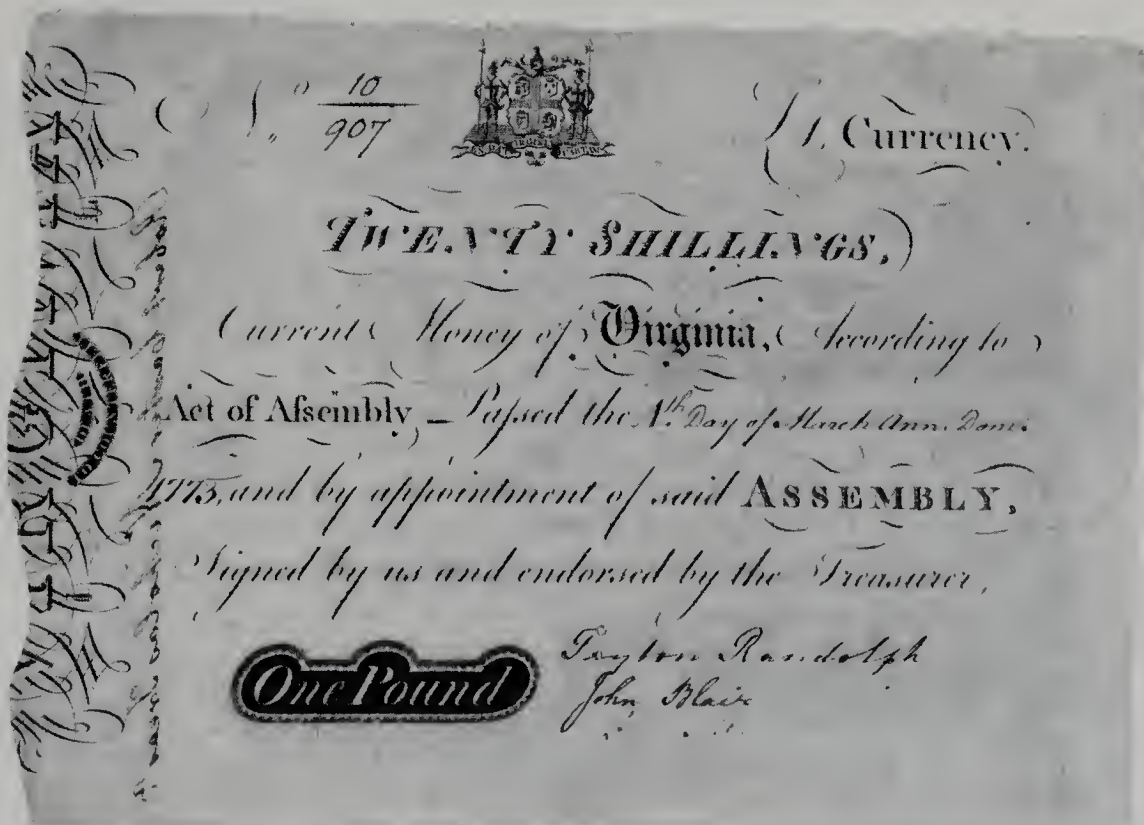 N.º 10
907
£ 1, Currency.
TWENTY SHILLINGS,
Current Money of Virginia, According to
Act of Aſsembly, — Paſsed the 4th Day of March Ann. Dom:
1773, and by appointment of said ASSEMBLY,
Signed by us and endorsed by the Treasurer,
Peyton Randolph
John Blair
One Pound